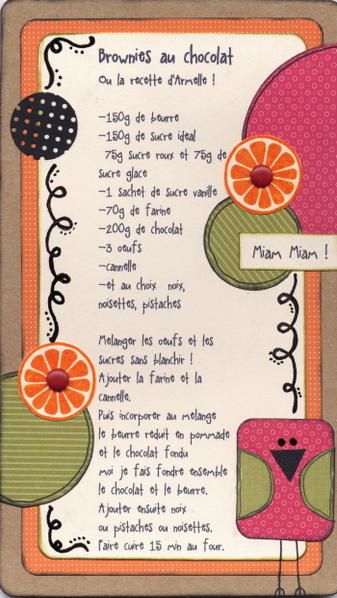 Brownies au chocolat
Ou la recette d'Armelle !
-150g de beurre
-150g de sucre ideal
75g sucre roux et 75g de
sucre glace
-1 sachet de sucre vanille
-70g de farine
-200g de chocolat
-3 oeufs
-cannelle
-et au choix noix,
noisettes, pistaches
Miam Miam !
Melanger les oeufs et les
sucres sans blanchir !
Ajouter la farine et la
cannelle.
Puis incorporer au melange
le beurre reduit en pommade
et le chocolat fondu
moi je fais fondre ensemble
le chocolat et le beurre.
Ajouter ensuite noix
ou pistaches ou noisettes.
Faire cuire 15 min au four.